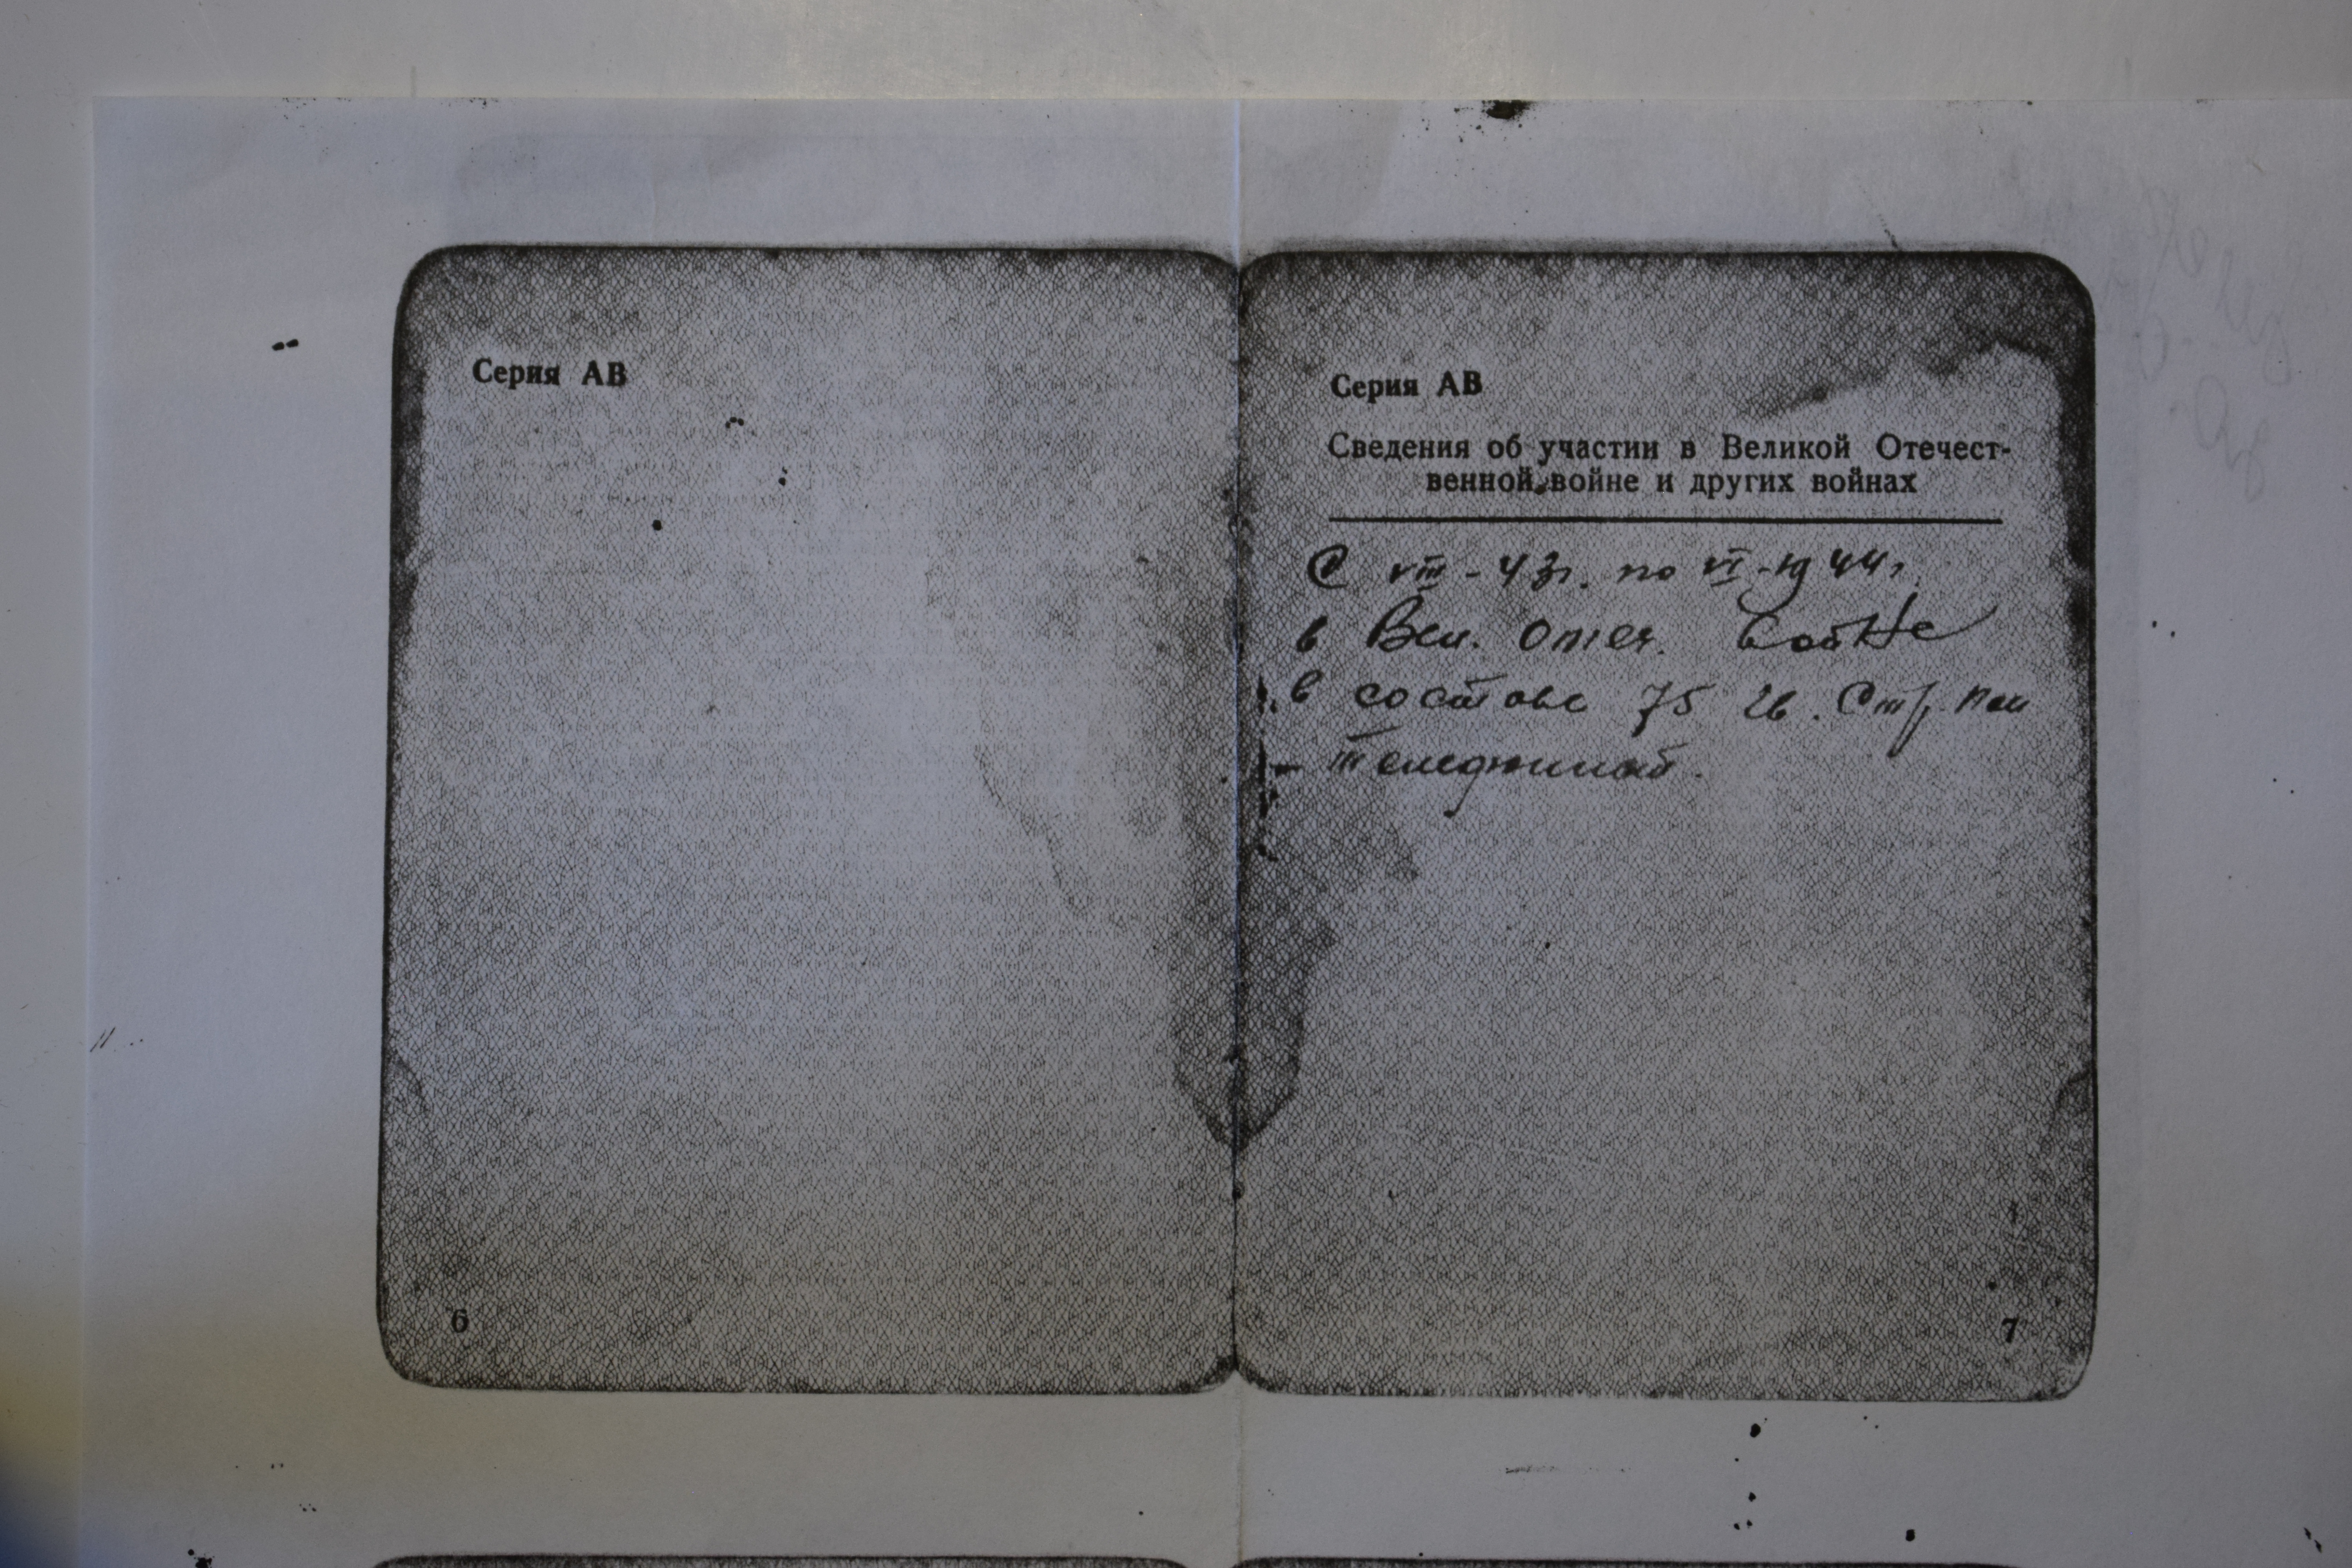 Серия АВ
6
Серия АВ
Сведения об участии в Великой Отечест-
венной войне и других войнах
С VIII - 43г. по VI - 1944г.
в Вел. Отеч. войне
в составе 75 гв. Стр. пол
7